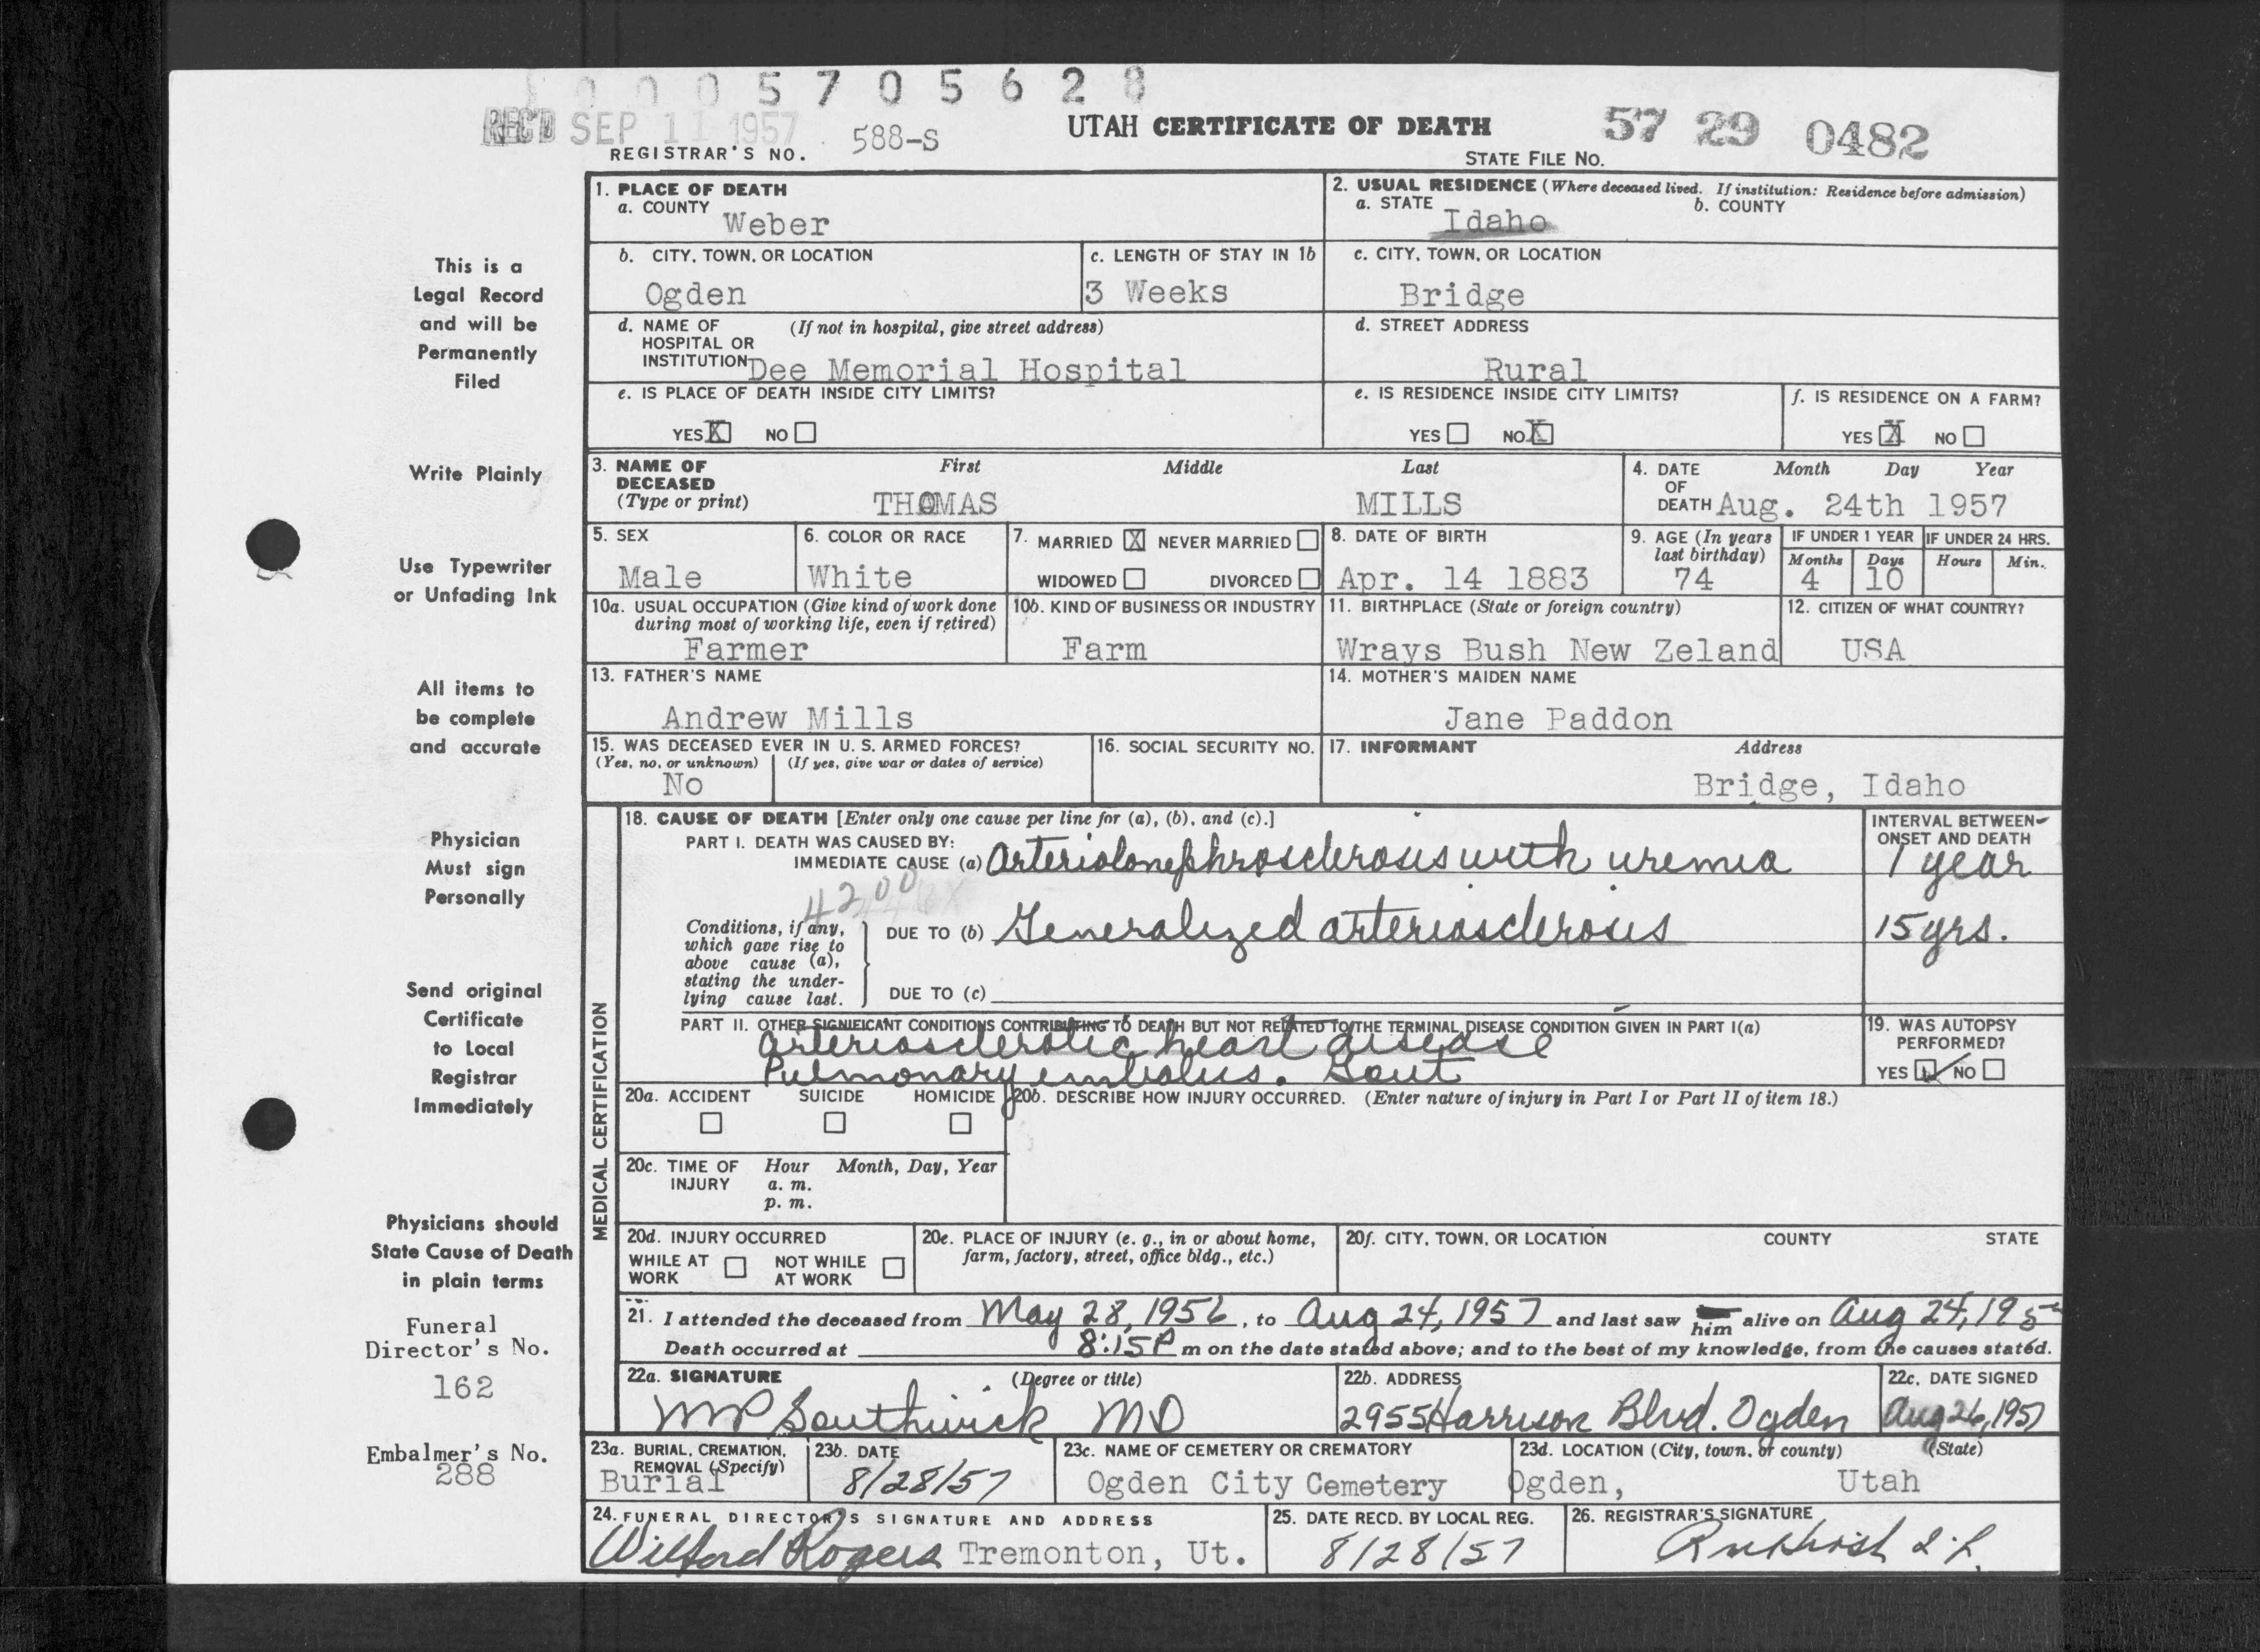 0 0 0 5 7 0 5 6 2 8
REC'D SEP 11 1957
588-S
UTAH CERTIFICATE OF DEATH
57 29 0482
REGISTRAR'S NO.
STATE FILE No.
This is a
Legal Record
and will be
Permanently
Filed
Write Plainly
Use Typewriter
or Unfading Ink
All items to
be complete
and accurate
Physician
Must sign
Personally
Send original
Certificate
to Local
Registrar
Immediately
Physicians should
State Cause of Death
in plain terms
Funeral
Director's No.
162
Embalmer's No.
288
1. PLACE OF DEATH
a. COUNTY
Weber
2. USUAL RESIDENCE (Where deceased lived. If institution: Residence before admission)
a. STATE b. COUNTY
Idaho
b. CITY, TOWN, OR LOCATION
Ogden
c. LENGTH OF STAY IN 1b
3 Weeks
c. CITY, TOWN, OR LOCATION
Bridge
d. NAME OF (If not in hospital, give street address)
HOSPITAL OR
INSTITUTION Dee Memorial Hospital
d. STREET ADDRESS
Rural
e. IS PLACE OF DEATH INSIDE CITY LIMITS?
YES X NO
e. IS RESIDENCE INSIDE CITY LIMITS?
YES NO X
f. IS RESIDENCE ON A FARM?
YES X NO
3. NAME OF First Middle Last
DECEASED
(Type or print) THOMAS MILLS
4. DATE Month Day Year
OF
DEATH Aug. 24th 1957
5. SEX
Male
6. COLOR OR RACE
White
7. MARRIED X NEVER MARRIED
WIDOWED DIVORCED
8. DATE OF BIRTH
Apr. 14 1883
9. AGE (In years
last birthday)
74
IF UNDER 1 YEAR
Months Days
4 10
IF UNDER 24 HRS.
Hours Min.
10a. USUAL OCCUPATION (Give kind of work done
during most of working life, even if retired)
Farmer
10b. KIND OF BUSINESS OR INDUSTRY
Farm
11. BIRTHPLACE (State or foreign country)
Wrays Bush New Zeland
12. CITIZEN OF WHAT COUNTRY?
USA
13. FATHER'S NAME
Andrew Mills
14. MOTHER'S MAIDEN NAME
Jane Paddon
15. WAS DECEASED EVER IN U. S. ARMED FORCES?
(Yes, no, or unknown) (If yes, give war or dates of service)
No
16. SOCIAL SECURITY NO.
17. INFORMANT Address
Bridge, Idaho
MEDICAL CERTIFICATION
18. CAUSE OF DEATH [Enter only one cause per line for (a), (b), and (c).]
INTERVAL BETWEEN
ONSET AND DEATH
PART I. DEATH WAS CAUSED BY:
IMMEDIATE CAUSE (a) Arteriolonephrosclerosis with uremia 1 year
4200
Conditions, if any,
which gave rise to
above cause (a),
stating the under-
lying cause last.
DUE TO (b) Generalized arteriosclerosis 15 yrs.
DUE TO (c)
PART II. OTHER SIGNIFICANT CONDITIONS CONTRIBUTING TO DEATH BUT NOT RELATED TO THE TERMINAL DISEASE CONDITION GIVEN IN PART I(a)
arteriosclerotic heart disease
Pulmonary embolus. Gout
19. WAS AUTOPSY
PERFORMED?
YES ✓ NO
20a. ACCIDENT SUICIDE HOMICIDE
20b. DESCRIBE HOW INJURY OCCURRED. (Enter nature of injury in Part I or Part II of item 18.)
20c. TIME OF Hour Month, Day, Year
INJURY a. m.
p. m.
20d. INJURY OCCURRED
WHILE AT NOT WHILE
WORK AT WORK
20e. PLACE OF INJURY (e. g., in or about home,
farm, factory, street, office bldg., etc.)
20f. CITY, TOWN, OR LOCATION COUNTY STATE
21. I attended the deceased from May 28, 1956, to Aug 24, 1957 and last saw him alive on Aug 24, 195
Death occurred at 8:15P m on the date stated above; and to the best of my knowledge, from the causes stated.
22a. SIGNATURE (Degree or title)
MP Southwick MD
22b. ADDRESS
2955 Harrison Blvd. Ogden
22c. DATE SIGNED
Aug 26, 1957
23a. BURIAL, CREMATION,
REMOVAL (Specify)
Burial
23b. DATE
8/28/57
23c. NAME OF CEMETERY OR CREMATORY
Ogden City Cemetery
23d. LOCATION (City, town, or county) (State)
Ogden, Utah
24. FUNERAL DIRECTOR'S SIGNATURE AND ADDRESS
Wilford Rogers Tremonton, Ut.
25. DATE RECD. BY LOCAL REG.
8/28/57
26. REGISTRAR'S SIGNATURE